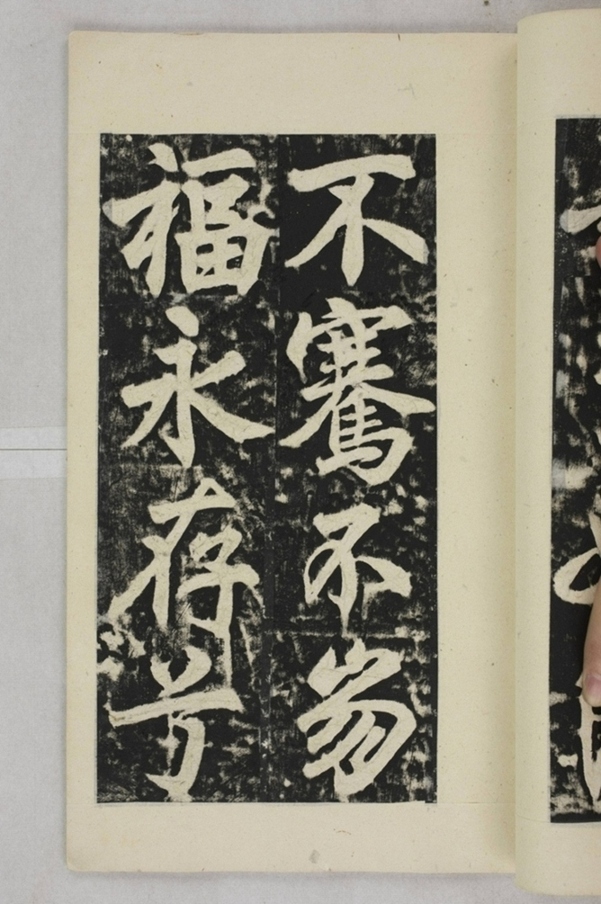 不騫不崩
福永存兮